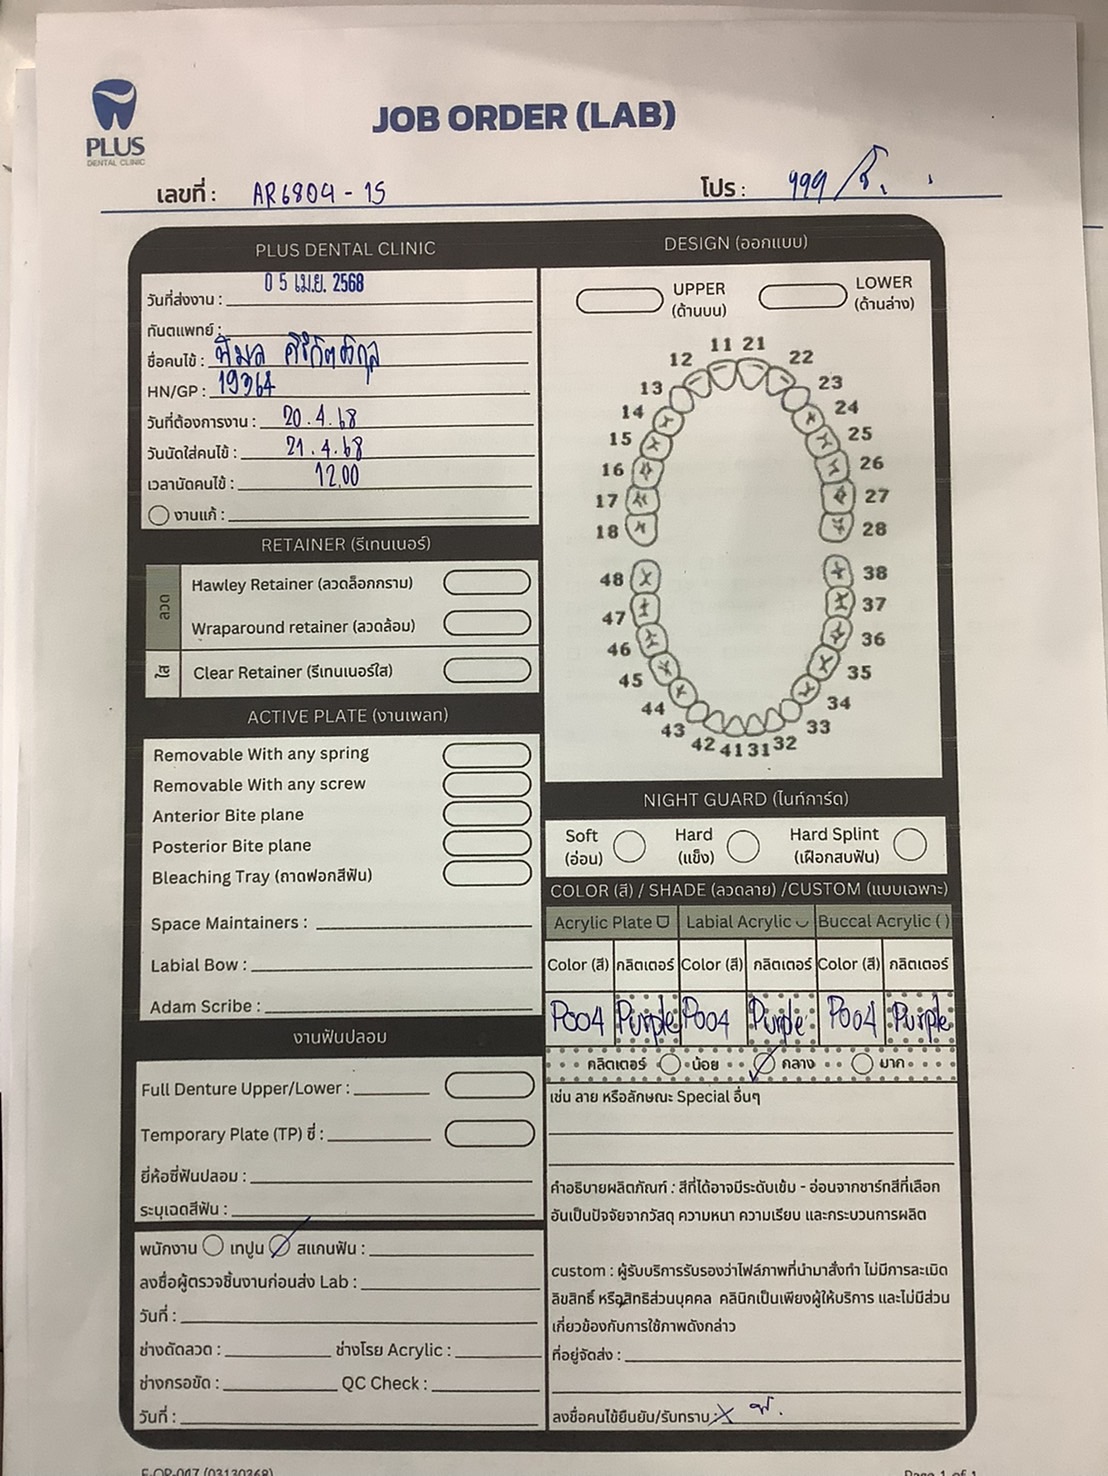 PLUS
DENTAL CLINIC
JOB ORDER (LAB)
เลขที่ : AR6804 - 15
โปร : 999 /
PLUS DENTAL CLINIC
วันที่ส่งงาน : 05 เม.ย. 2568
ทันตแพทย์ :
ชื่อคนไข้ : พิมล
HN/GP : 19364
วันที่ต้องการงาน : 20.4.68
วันนัดใส่คนไข้ : 21.4.68
เวลานัดคนไข้ : 12.00
งานแก้ :
RETAINER (รีเทนเนอร์)
ลวด
Hawley Retainer (ลวดล็อกกราม)
Wraparound retainer (ลวดล้อม)
ใส
Clear Retainer (รีเทนเนอร์ใส)
ACTIVE PLATE (งานเพลท)
Removable With any spring
Removable With any screw
Anterior Bite plane
Posterior Bite plane
Bleaching Tray (ถาดฟอกสีฟัน)
Space Maintainers :
Labial Bow :
Adam Scribe :
งานฟันปลอม
Full Denture Upper/Lower :
Temporary Plate (TP) ซี่ :
ยี่ห้อซี่ฟันปลอม :
ระบุเฉดสีฟัน :
พนักงาน เทปูน สแกนฟัน :
ลงชื่อผู้ตรวจชิ้นงานก่อนส่ง Lab :
วันที่ :
ช่างดัดลวด : ช่างโรย Acrylic :
ช่างกรอขัด : QC Check :
วันที่ :
DESIGN (ออกแบบ)
UPPER LOWER
(ด้านบน) (ด้านล่าง)
11 21
12 22
13 23
14 24
15 25
16 26
17 27
18 28
48 38
47 37
46 36
45 35
44 34
43 33
42 41 31 32
NIGHT GUARD (ไนท์การ์ด)
Soft Hard Hard Splint
(อ่อน) (แข็ง) (เฝือกสบฟัน)
COLOR (สี) / SHADE (ลวดลาย) /CUSTOM (แบบเฉพาะ)
Acrylic Plate Labial Acrylic Buccal Acrylic ( )
Color (สี) กลิตเตอร์ Color (สี) กลิตเตอร์ Color (สี) กลิตเตอร์
P004 Purple P004 Purple P004 Purple
กลิตเตอร์ น้อย กลาง มาก
เช่น ลาย หรือลักษณะ Special อื่นๆ
คำอธิบายผลิตภัณฑ์ : สีที่ได้อาจมีระดับเข้ม - อ่อนจากชาร์ทสีที่เลือก
อันเป็นปัจจัยจากวัสดุ ความหนา ความเรียบ และกระบวนการผลิต
custom : ผู้รับบริการรับรองว่าไฟล์ภาพที่นำมาสั่งทำ ไม่มีการละเมิด
ลิขสิทธิ์ หรือสิทธิส่วนบุคคล คลินิกเป็นเพียงผู้ให้บริการ และไม่มีส่วน
เกี่ยวข้องกับการใช้ภาพดังกล่าว
ที่อยู่จัดส่ง :
ลงชื่อคนไข้ยืนยัน/รับทราบ :